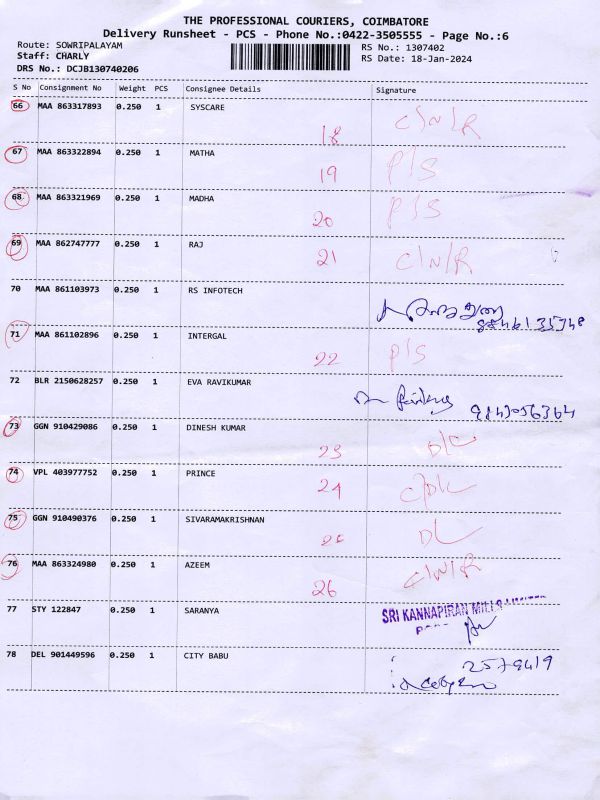 THE PROFESSIONAL COURIERS, COIMBATORE
Delivery Runsheet - PCS - Phone No.:0422-3505555 - Page No.:6
Route: SOWRIPALAYAM RS No.: 1307402
Staff: CHARLY RS Date: 18-Jan-2024
DRS No.: DCJB130740206
S No Consignment No Weight PCS Consignee Details Signature
66 MAA 863317893 0.250 1 SYSCARE
18 C/N/R
67 MAA 863322894 0.250 1 MATHA
19 P/S
68 MAA 863321969 0.250 1 MADHA
20 P/S
69 MAA 862747777 0.250 1 RAJ
21 C/N/R
70 MAA 861103973 0.250 1 RS INFOTECH
71 MAA 861102896 0.250 1 INTERGAL
22 P/S
72 BLR 2150628257 0.250 1 EVA RAVIKUMAR
9843056364
73 GGN 910429086 0.250 1 DINESH KUMAR
23 D/L
74 VPL 403977752 0.250 1 PRINCE
24
75 GGN 910490376 0.250 1 SIVARAMAKRISHNAN
25 DL
76 MAA 863324980 0.250 1 AZEEM
26 C/N/R
77 STY 122847 0.250 1 SARANYA
SRI KANNAPIRAN MILLS LIMITED
78 DEL 901449596 0.250 1 CITY BABU
2579419